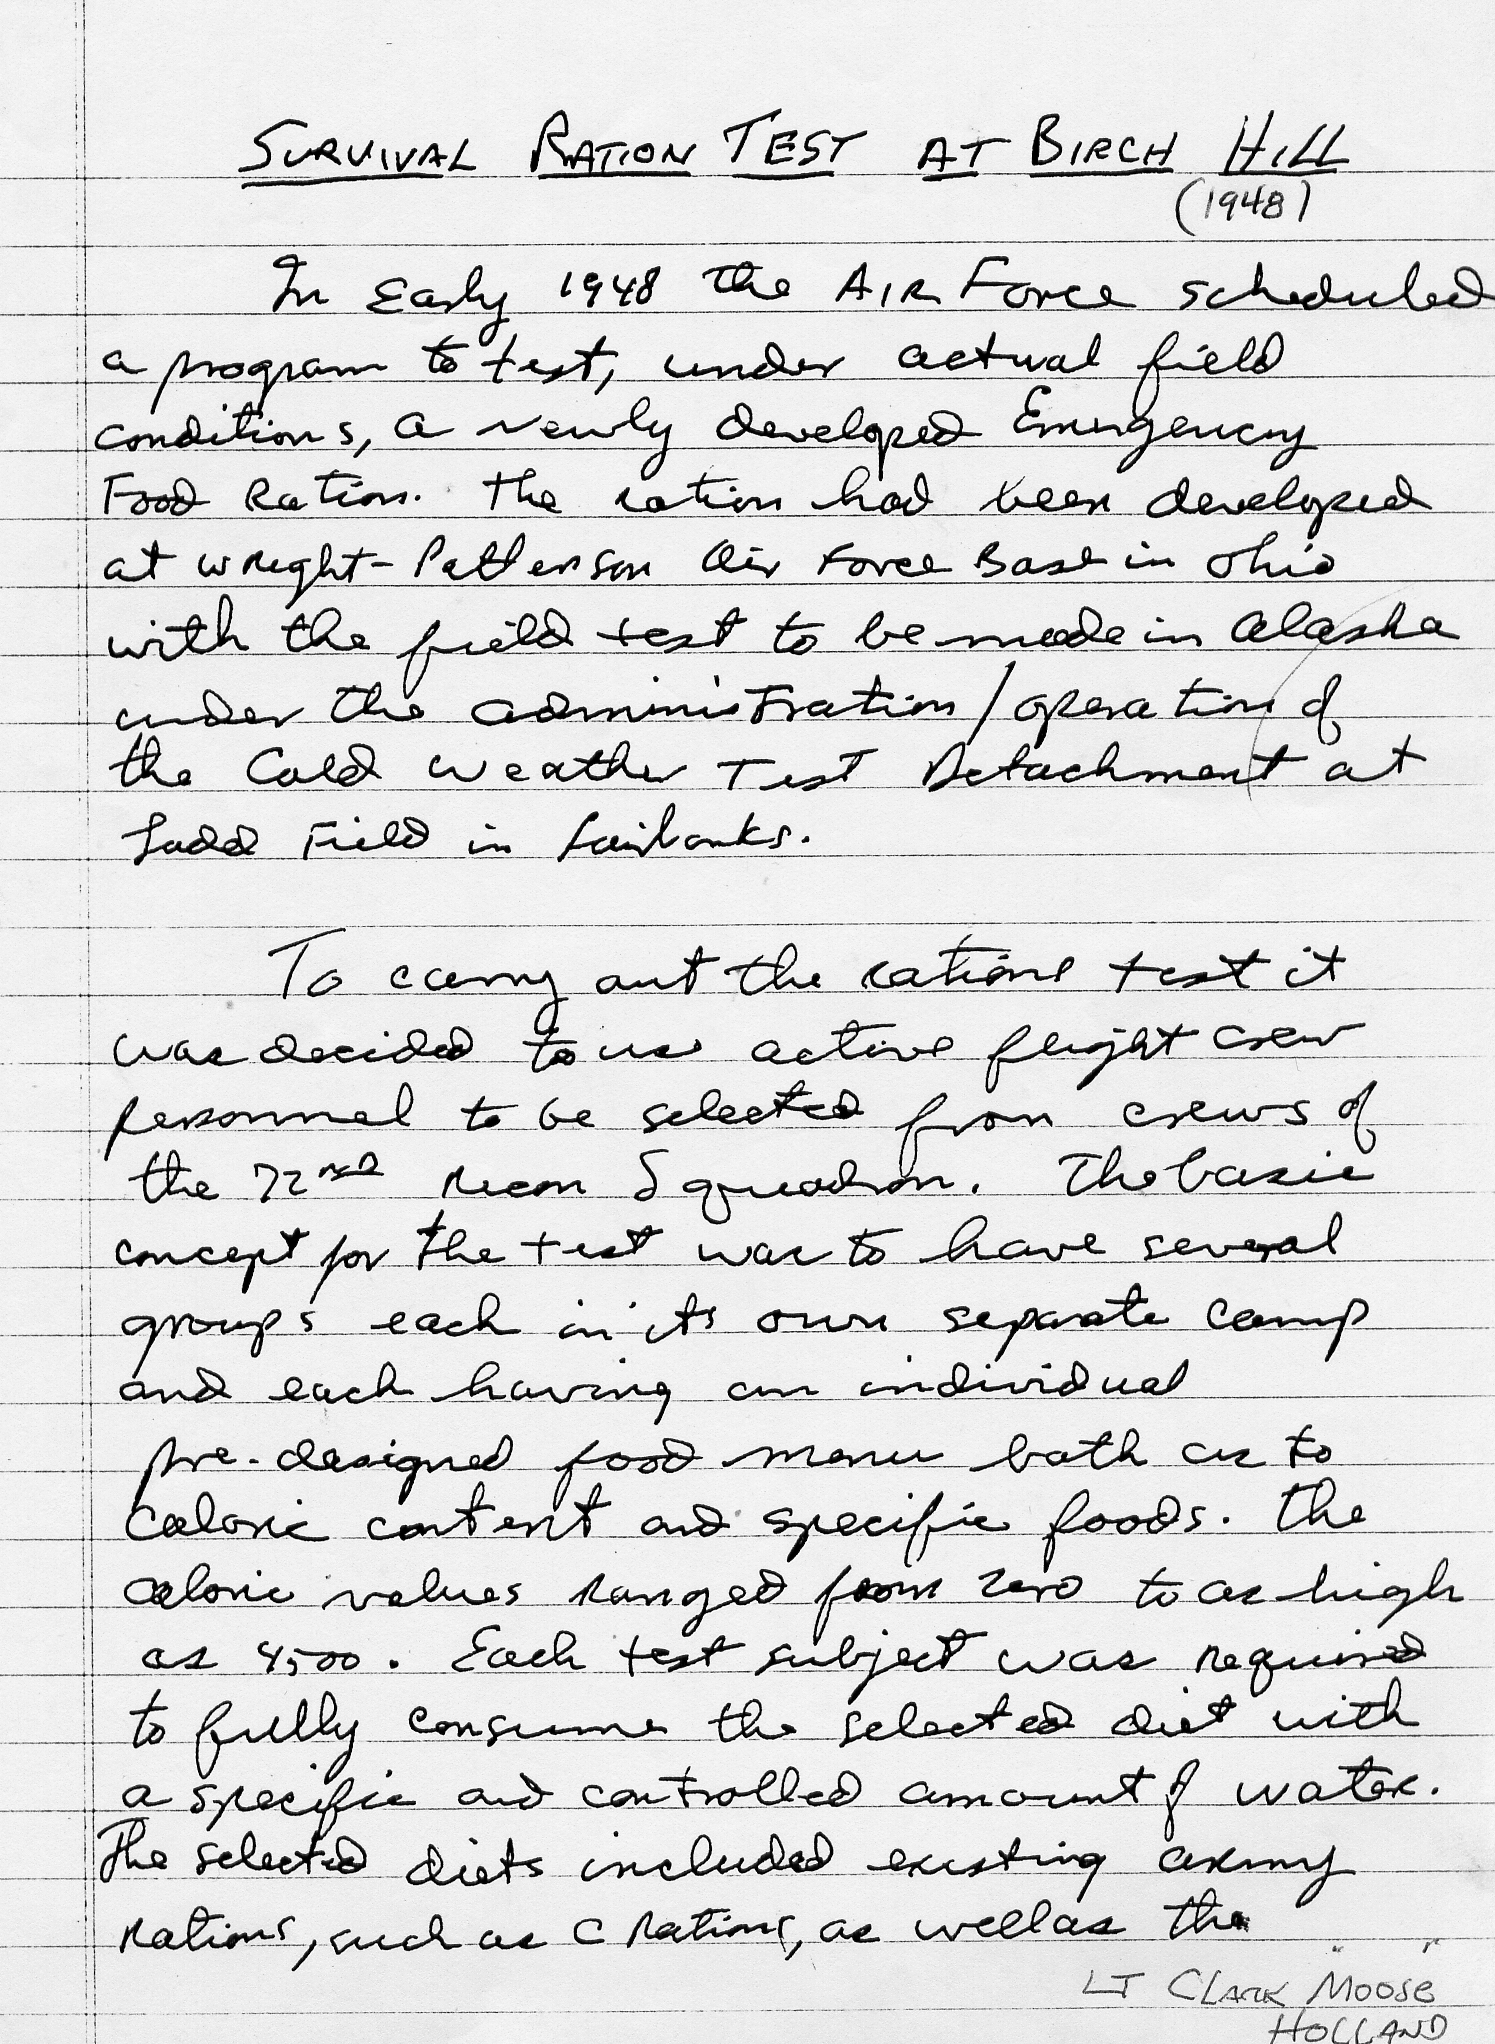 SURVIVAL RATION TEST AT BIRCH HILL
(1948)
In early 1948 the AIR Force scheduled
a program to test, under actual field
conditions, a newly developed Emergency
Food Ration. The ration had been developed
at Wright-Patterson Air Force Base in Ohio
with the field test to be made in Alaska
under the administration/operation of
the Cold Weather Test Detachment at
Ladd Field in Fairbanks.
To carry out the rations test it
was decided to use active flight crew
personnel to be selected from crews of
the 72nd Recon Squadron. The basic
concept for the test was to have several
groups each in its own separate camp
and each having an individual
pre-designed food menu both as to
caloric content and specific foods. The
caloric values ranged from zero to as high
as 4,500. Each test subject was required
to fully consume the selected diet with
a specific and controlled amount of water.
The selected diets included existing army
rations, such as C Rations, as well as the
LT CLARK "MOOSE"
HOLLAND